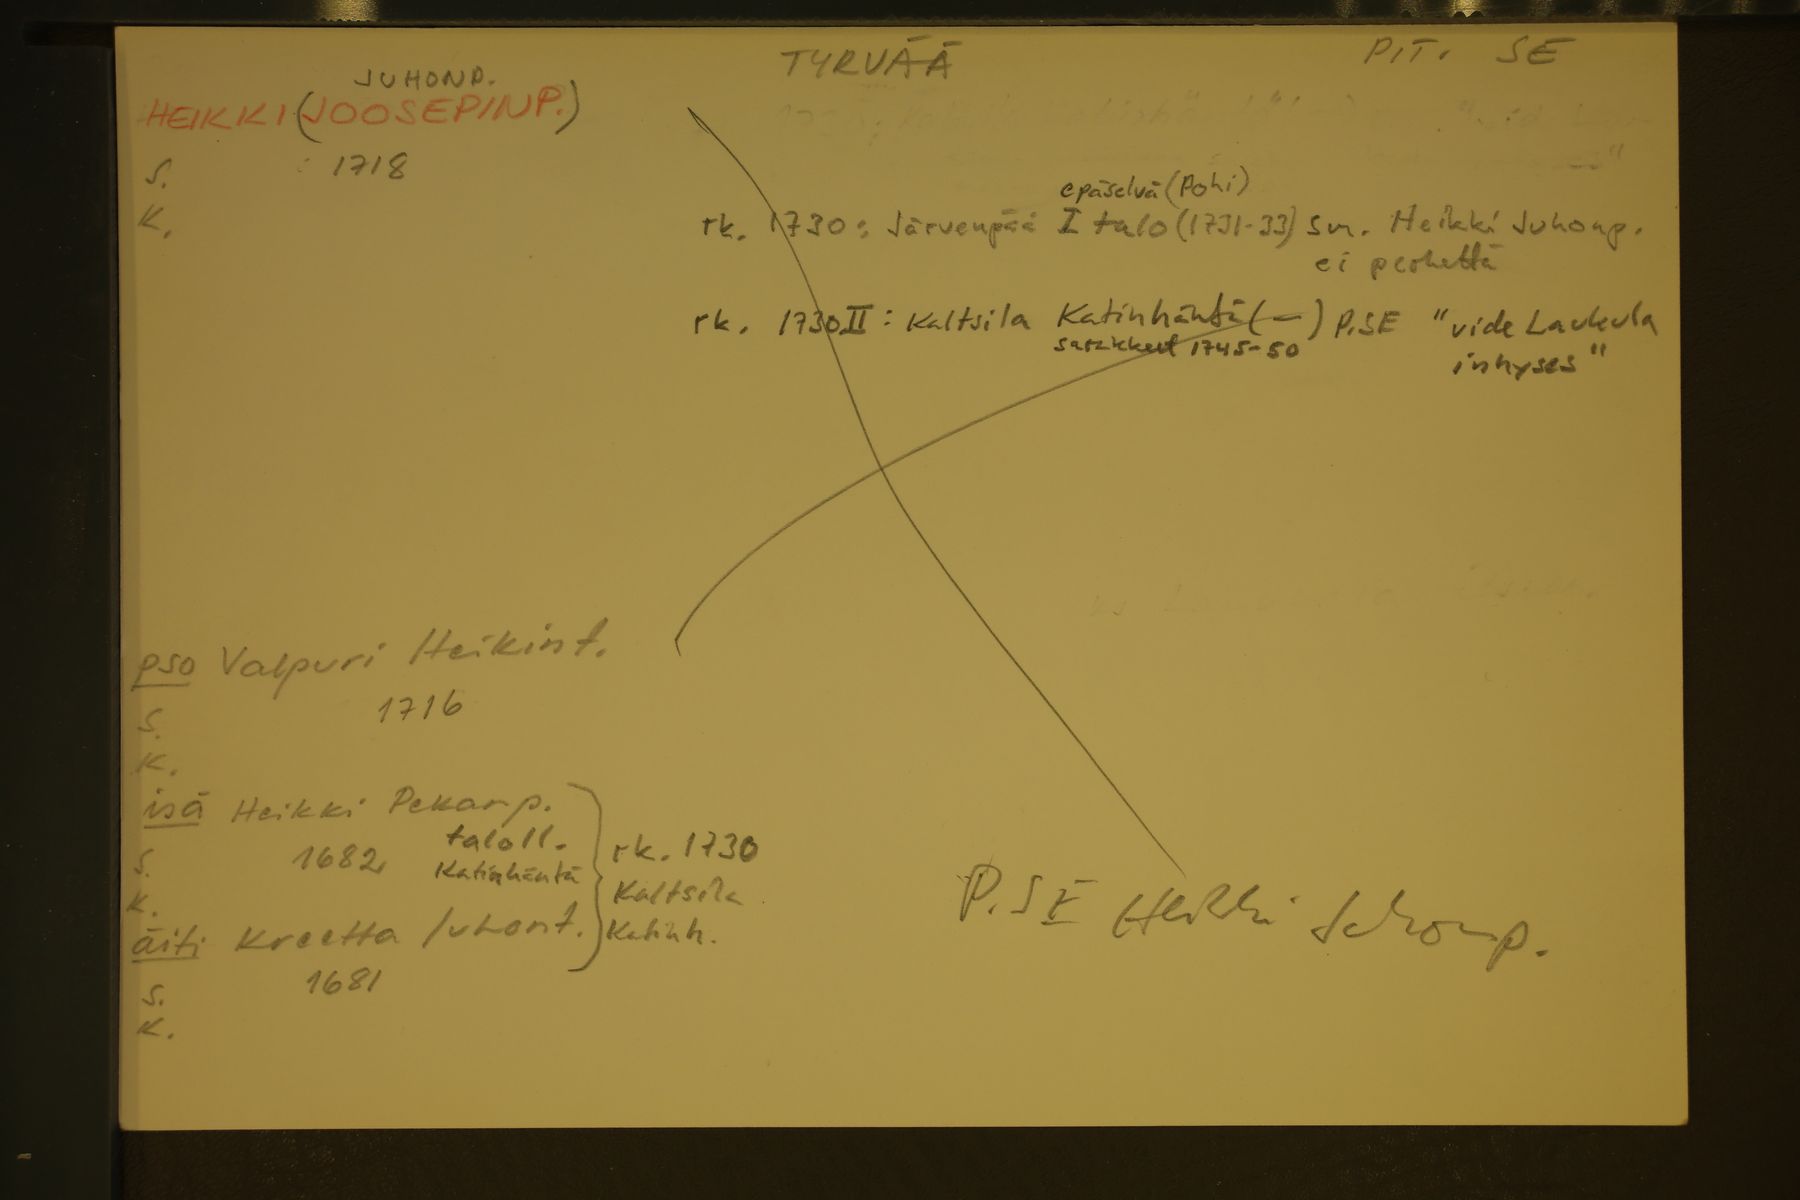 TYRVÄÄ
PIT. SE
JUHONP.
HEIKKI (JOOSEPINP.)
S. 1718
K.
epäselvä (Pohi)
rk. 1730: Järvenpää I talo (1731-33) sv. Heikki Juhonp.
ei perhettä
rk. 1730 II: Kaltsila Katinhäntä (—) P.SE "vide Laukula
sarakkeet 1745-50
inhyses"
pso Valpuri Heikint.
S. 1716
K.
isä Heikki Pekanp.
taloll.
S. 1682 Katinhäntä
rk. 1730
K.
Kaltsila
äiti Kreetta Juhont.
Katinh.
S. 1681
K.
P.SE Heikki Juhonp.